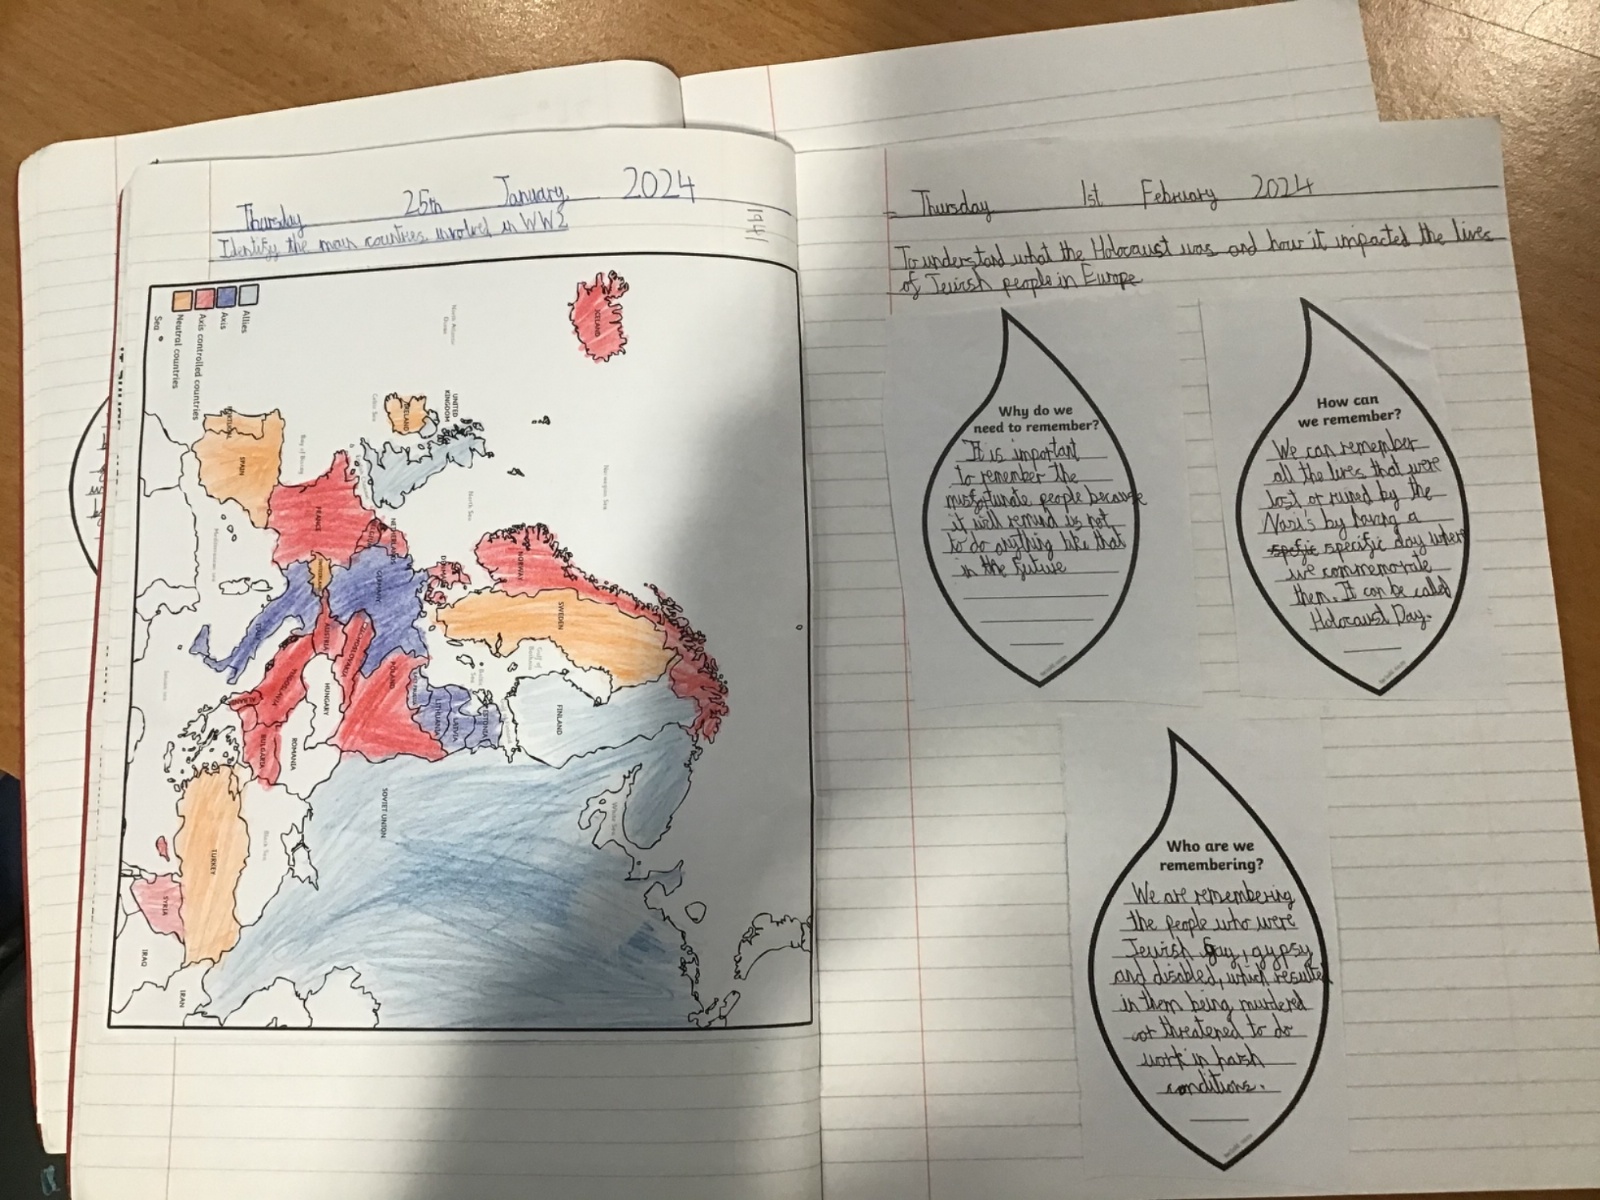 Thursday 25th January 2024
Identify the main countries involved in WW2
1941
Allies
Axis
Axis controlled countries
Neutral countries
Sea
North Atlantic Ocean
ICELAND
UNITED KINGDOM
IRELAND
Celtic Sea
Norwegian Sea
North Sea
PORTUGAL
SPAIN
Bay of Biscay
FRANCE
Mediterranean Sea
NETHERLANDS
GERMANY
DENMARK
NORWAY
SWEDEN
ITALY
AUSTRIA
POLAND
HUNGARY
YUGOSLAVIA
ALBANIA
BULGARIA
ROMANIA
Baltic Sea
Gulf of Bothnia
LITHUANIA
LATVIA
ESTONIA
FINLAND
SOVIET UNION
White Sea
Black Sea
TURKEY
SYRIA
IRAQ
IRAN
Thursday 1st February 2024
To understand what the Holocaust was and how it impacted the lives
of Jewish people in Europe
Why do we
need to remember?
It is important
to remember the
misfortunate people because
it will remind us not
to do anything like that
in the future
How can
we remember?
We can remember
all the lives that were
lost or ruined by the
Nazi's by having a
spefic specific day where
we commemorate
them. It can be called
Holocaust Day.
Who are we
remembering?
We are remembering
the people who were
Jewish, gay, gypsy
and disabled, which resulted
in them being murdered
or threatened to do
work in harsh
conditions.